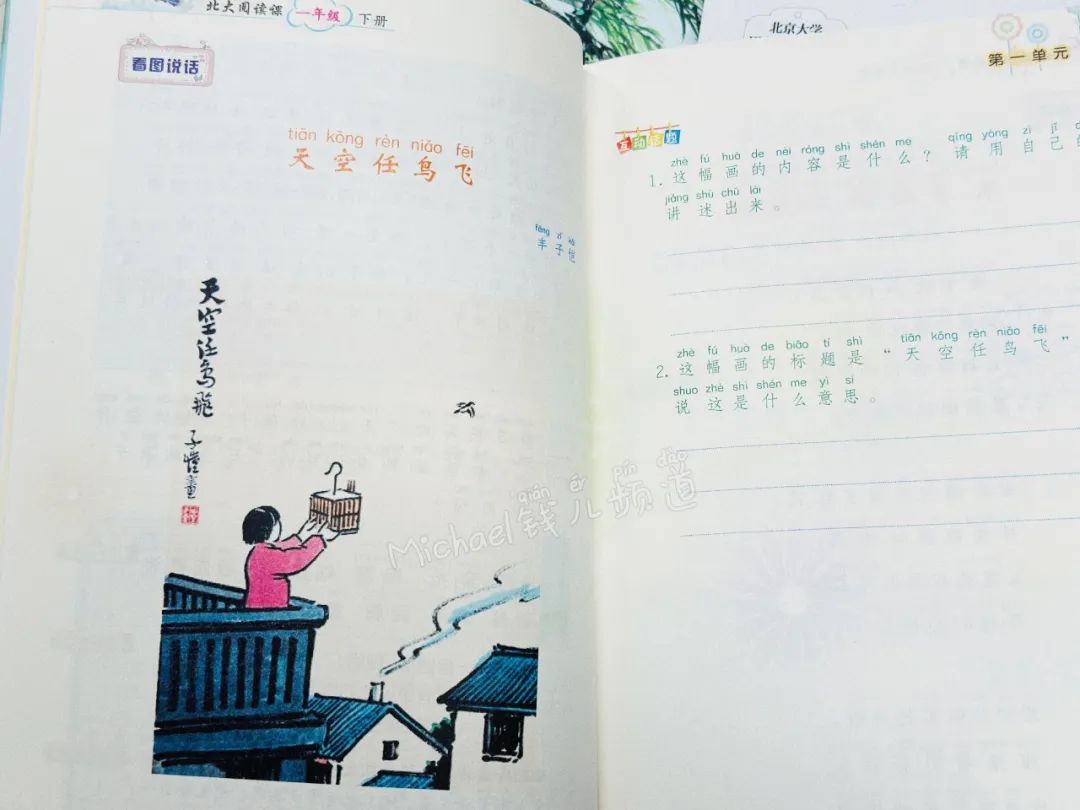 北大阅读课 一年级 下册
看图说话
tiān kōng rèn niǎo fēi
天空任鸟飞
fēng zǐ kǎi
丰子恺
天空任鸟飛
子愷畫
qián ér pín dào
Michael钱儿频道
北京大学
第一单元
互动话题
zhè fú huà de nèi róng shì shén me qǐng yòng zì jǐ
1. 这幅画的内容是什么？请用自己的
jiǎng shù chū lái
讲述出来。
zhè fú huà de biāo tí shì tiān kōng rèn niǎo fēi
2. 这幅画的标题是“天空任鸟飞”
shuō zhè shì shén me yì si
说这是什么意思。